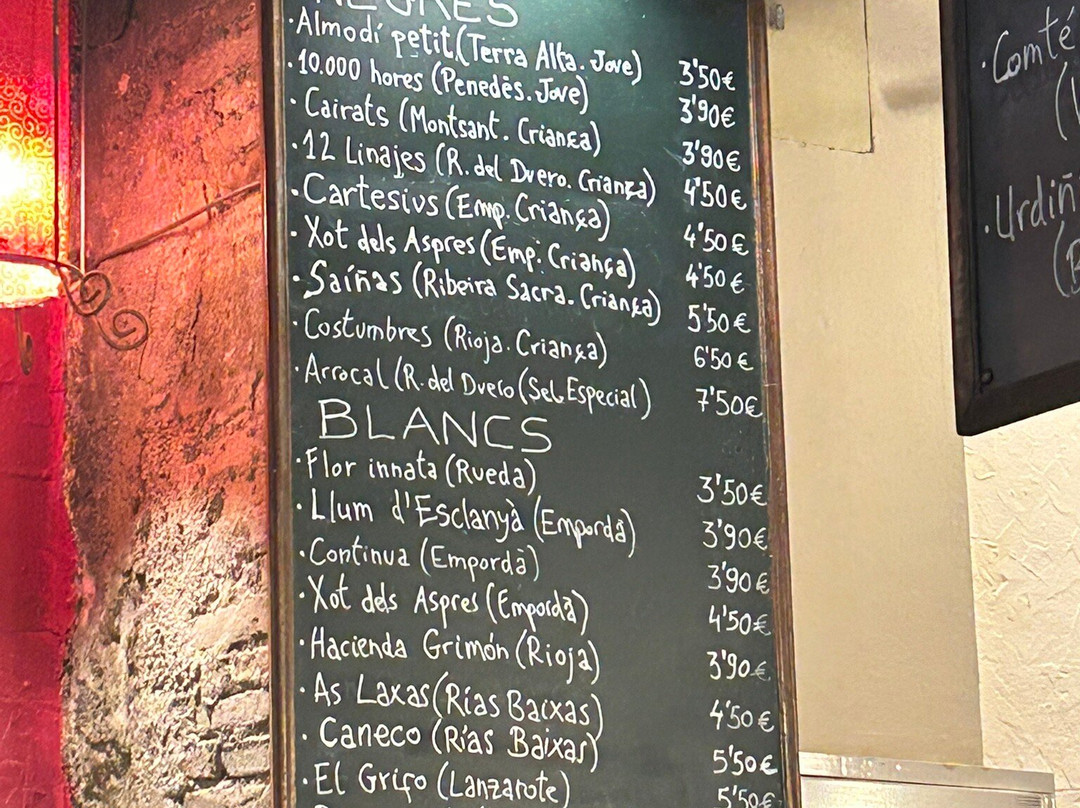 NEGRES
·Almodí petit (Terra Alta. Jove) 3'50€
·10.000 hores (Penedès. Jove) 3'90€
·Cairats (Montsant. Criança) 3'90€
·12 Linajes (R. del Duero. Criança) 4'50€
·Cartesius (Emp. Criança) 4'50€
·Xot dels Aspres (Emp. Criança) 4'50€
·Saíñas (Ribeira Sacra. Criança) 5'50€
·Costumbres (Rioja. Criança) 6'50€
·Arrocal (R. del Duero (Sel. Especial) 7'50€
BLANCS
·Flor innata (Rueda) 3'50€
·Llum d'Esclanyà (Empordà) 3'90€
·Continua (Empordà) 3'90€
·Xot dels Aspres (Empordà) 4'50€
·Hacienda Grimón (Rioja) 3'90€
·As Laxas (Rías Baixas) 4'50€
·Caneco (Rías Baixas) 5'50€
·El Grifo (Lanzarote) 5'50€
·Comté